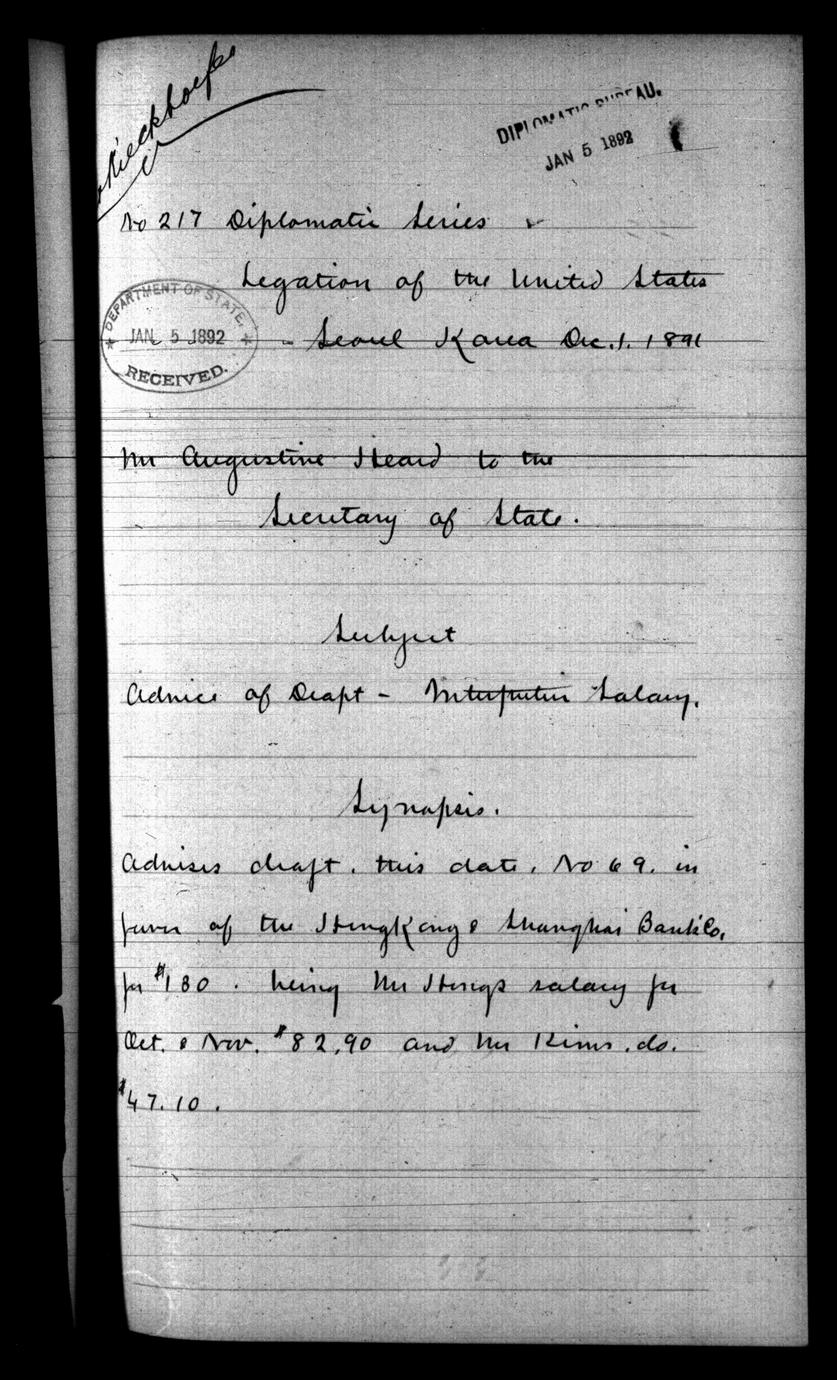 DIPLOMATIC BUREAU.
JAN 5 1892
No 217 Diplomatic Series
Legation of the United States
DEPARTMENT OF STATE.
JAN 5 1892
RECEIVED.
Seoul Korea Dec. 1. 1891
Mr Augustine Heard to the
Secretary of State.
Subject
Advice of Draft - Interpreter Salary.
Synopsis.
Advises draft, this date, No 69. in
favor of the HongKong & Shanghai Bank'Co,
for $130. being Mr Hong's salary for
Oct. & Nov. $82.90 and Mr Kims. do.
$47.10.